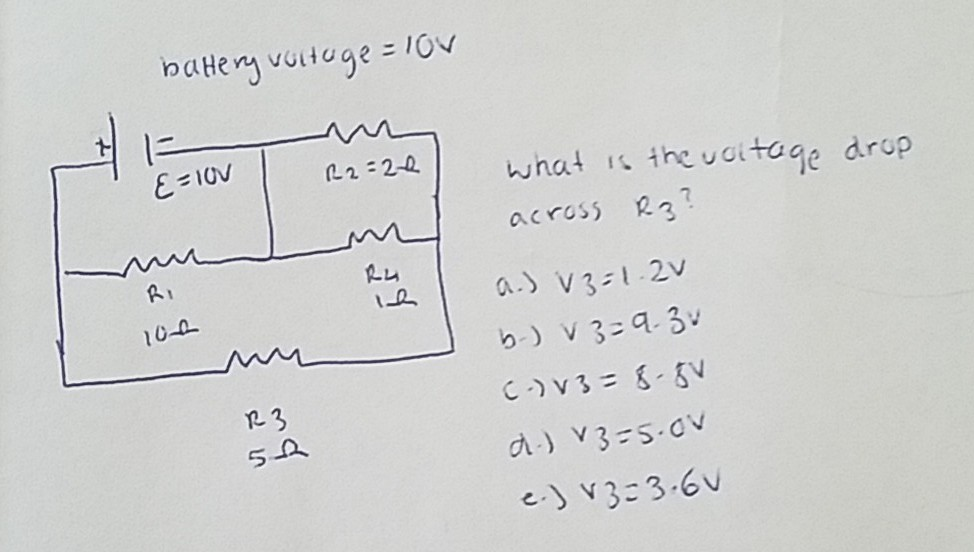 battery voltage = 10V
+ -
ε = 10V
R2 = 2Ω
R1
10Ω
R4
1Ω
R3
5Ω
what is the voltage drop
across R3?
a.) V3 = 1.2V
b.) V3 = 9.3V
c.) V3 = 8.8V
d.) V3 = 5.0V
e.) V3 = 3.6V